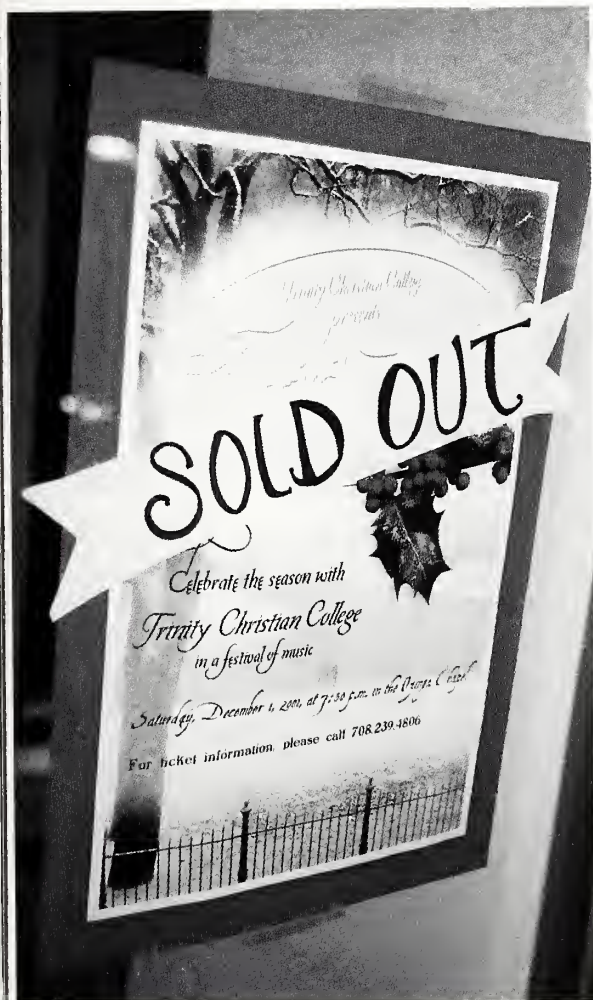 Trinity Christian College
presents
SOLD OUT
Celebrate the season with
Trinity Christian College
in a festival of music
Saturday, December 1, 2001, at 7:30 p.m. in the Ozinga Chapel
For ticket information, please call 708.239.4806